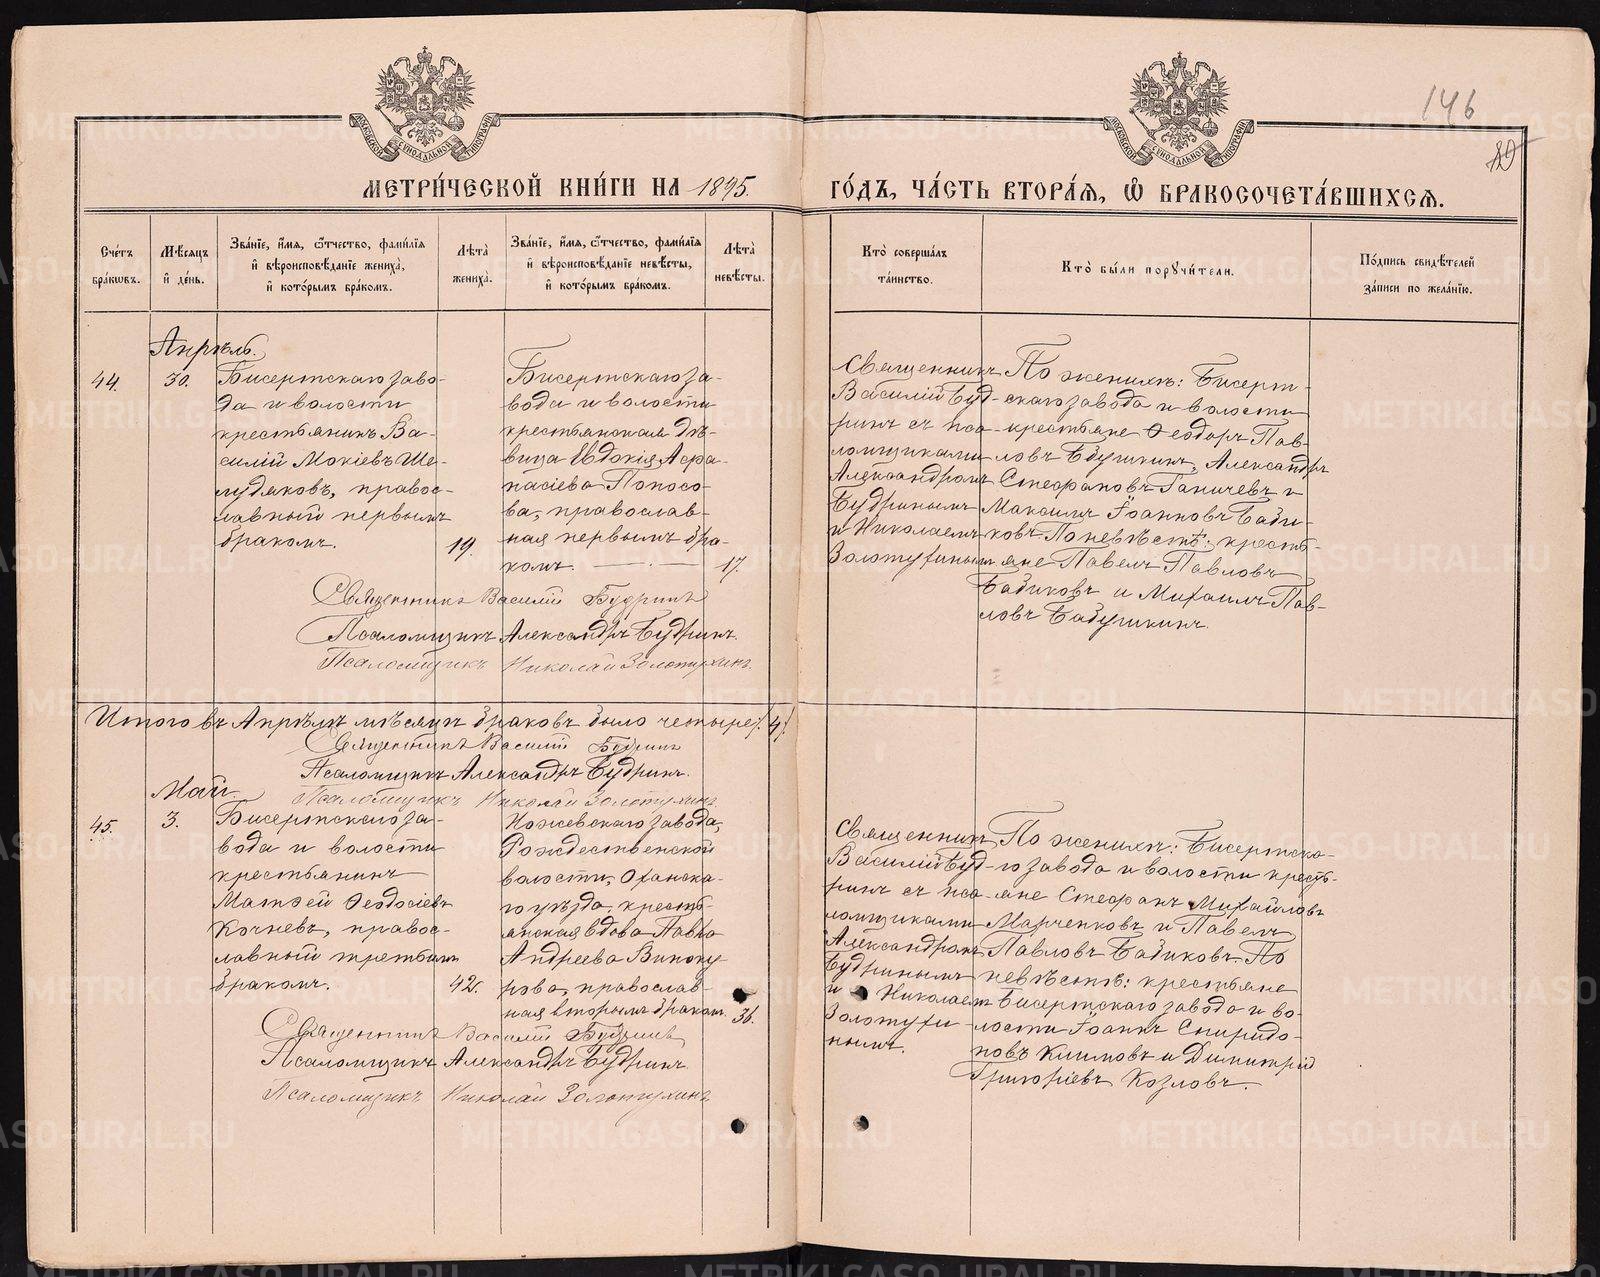 МОСКОВСКОЙ СѴНОДАЛЬНОЙ ТИПОГРАФІИ
МОСКОВСКОЙ СѴНОДАЛЬНОЙ ТИПОГРАФІИ
146
МЕТРИ́ЧЕСКОЙ КНИ́ГИ НА 1895.
ГО́ДЪ, ЧА́СТЬ ВТОРА́Я, Ѡ БРАКОСОЧЕТА́ВШИХСЯ.
Сче́тъ
бра́кωвъ.
Мѣ́сяцъ
и҆ де́нь.
Зва́нїе, и҆́мя, ѻ҆́тчество, фами́лїя
и҆ вѣроисповѣ́данїе жениха̀,
и҆ кото́рымъ бра́комъ.
Лѣ́та
жениха̀.
Зва́нїе, и҆́мя, ѻ҆́тчество, фами́лїя
и҆ вѣроисповѣ́данїе невѣ́сты,
и҆ кото́рымъ бра́комъ.
Лѣ́та
невѣ́сты.
Кто̀ соверша́лъ
та́инство.
Кто̀ бы́ли порꙋчи́тели.
По́дпись свидѣ́телей
за́писи по жела́нїю.
Апрѣль.
44.
30.
Бисертскаго заво-
да и волости
крестьянинъ Ва-
силій Мокіевъ Ше-
лудяковъ, правос-
лавный первымъ
бракомъ.
19.
Бисертскаго за-
вода и волости
крестьянская дѣ-
вица Евдокія Аѳа-
насіева Попосо-
ва, православ-
ная первымъ бра-
комъ.
17.
Священникъ
Василій Буд-
ринъ съ пса-
ломщиками
Александромъ
Будринымъ
и Николаемъ
Золотухинымъ
По женихѣ: Бисерт-
скаго завода и волости
крестьяне Ѳеодоръ Пав-
ловъ Бабушкинъ, Александръ
Стефановъ Ганичевъ и
Максимъ Іоанновъ Бади-
ковъ. По невѣстѣ: кресть-
яне Павелъ Павловъ
Бадиковъ и Михаилъ Пав-
ловъ Бабушкинъ.
Священникъ Василій Будринъ
Псаломщикъ Александръ Будринъ.
Псаломщикъ Николай Золотухинъ.
Итого въ Апрѣлѣ мѣсяцѣ браковъ было четыре /4/.
Священникъ Василій Будринъ
Псаломщикъ Александръ Будринъ.
Псаломщикъ Николай Золотухинъ.
Май.
45.
3.
Бисертскаго за-
вода и волости
крестьянинъ
Матѳей Ѳеодосіевъ
Кочневъ, правос-
лавный третьимъ
бракомъ.
42.
Ножевскаго завода,
Рождественской
волости, Оханска-
го уѣзда, кресть-
янская вдова Павла
Андреева Виноку
рова, православ-
ная вторымъ бракомъ.
36.
Священникъ
Василій Буд-
ринъ съ пса-
ломщиками
Александромъ
Будринымъ
и Николаемъ
Золотухи-
нымъ.
По женихѣ: Бисертска-
го завода и волости кресть-
яне Стефанъ Михайловъ
Марченковъ и Павелъ
Павловъ Бадиковъ. По
невѣстѣ: крестьяне
Бисертскаго завода и во-
лости Іоаннъ Спиридо-
новъ Климовъ и Димитрій
Григоріевъ Козловъ.
Священникъ Василій Будринъ
Псаломщикъ Александръ Будринъ.
Псаломщикъ Николай Золотухинъ.
METRIKI.GASO-URAL.RU